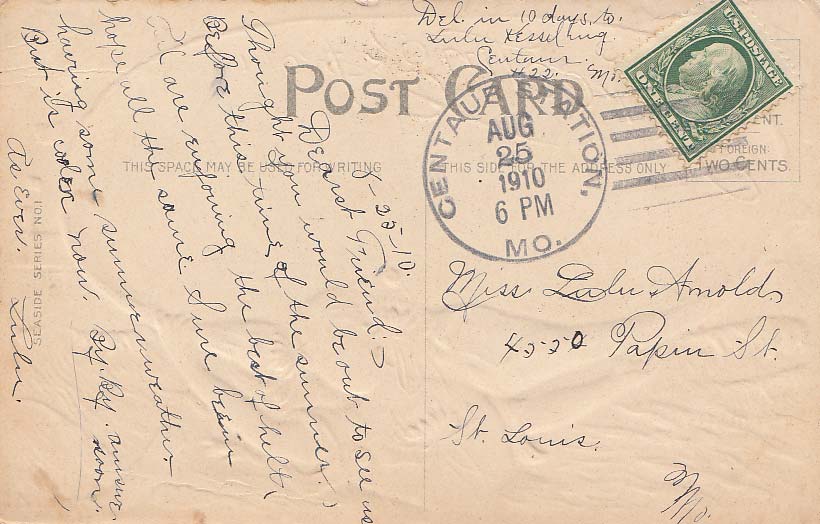 Del. in 10 days. to.
Lulu Kesselring
Centaur.
#22. Mo.
POST CARD
U.S. POSTAGE
ONE CENT
FOREIGN:
TWO CENTS.
THIS SPACE MAY BE USED FOR WRITING
THIS SIDE FOR THE ADDRESS ONLY
CENTAUR STATION,
AUG
25
1910
6 PM
MO.
8-25-10.
Dearst Friend:-
Thought you would be out to see us
Before this time of the summer.
All are enjoying the best of helth
hope all the same Sure been
having some summer weather
But its cooler now. By. By. answer
soon.
As Ever. Lulu.
SEASIDE SERIES NO.1
Miss Lulu Arnold,
4520 Papin St.
St. Louis.
Mo.